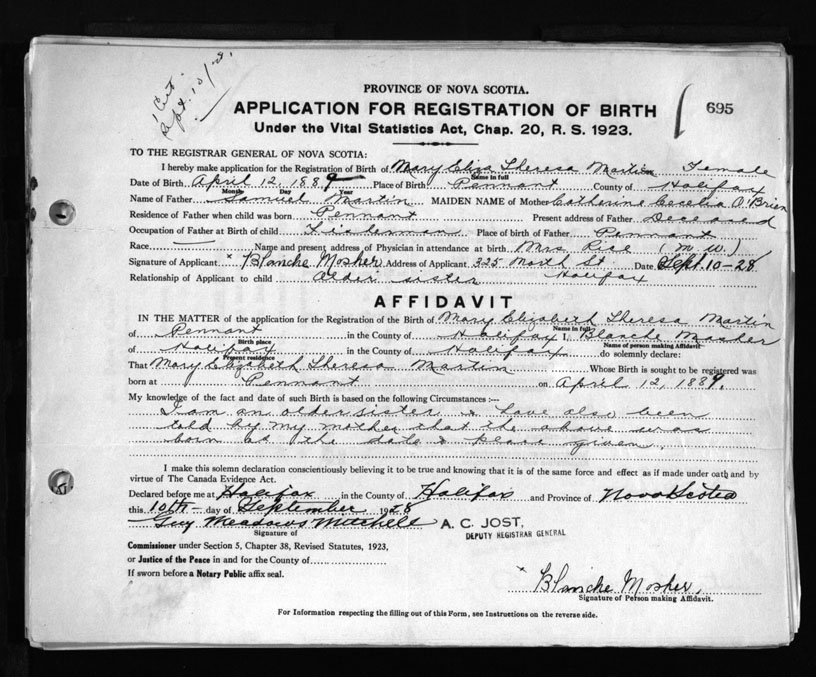 1 Cert.
Sept. 10/28.
PROVINCE OF NOVA SCOTIA.
APPLICATION FOR REGISTRATION OF BIRTH
695
Under the Vital Statistics Act, Chap. 20, R. S. 1923.
TO THE REGISTRAR GENERAL OF NOVA SCOTIA:
I hereby make application for the Registration of Birth of Mary Eliza Theresa Martin Female
Name in full
Date of Birth April 12, 1889 Place of Birth Pennant County of Halifax
Month Day Year
Name of Father Samuel Martin MAIDEN NAME of Mother Catherine Cecelia O'Brien
Residence of Father when child was born Pennant Present address of Father Deceased
Occupation of Father at Birth of child Fisherman Place of birth of Father Pennant
Race Name and present address of Physician in attendance at birth Mrs. Rice (m. w.)
Signature of Applicant x Blanche Mosher Address of Applicant 325 North St Date Sept. 10-28
Relationship of Applicant to child older sister Halifax
AFFIDAVIT
IN THE MATTER of the application for the Registration of the Birth of Mary Elizabeth Theresa Martin
Name in full
of Pennant in the County of Halifax I, Blanche Mosher
Birth place Name of person making Affidavit
of Halifax in the County of Halifax do solemnly declare:
Present residence
That Mary Elizabeth Theresa Martin Whose Birth is sought to be registered was
born at Pennant on April 12, 1889.
My knowledge of the fact and date of such Birth is based on the following Circumstances :—
I am an older sister & have also been
told by my mother that the above was
born at the date & place given.
I make this solemn declaration conscientiously believing it to be true and knowing that it is of the same force and effect as if made under oath and by
virtue of The Canada Evidence Act.
Declared before me at Halifax in the County of Halifax and Province of Nova Scotia
this 10th day of September 1928
Guy Meadows Mitchell A. C. JOST,
Signature of DEPUTY REGISTRAR GENERAL
Commissioner under Section 5, Chapter 38, Revised Statutes, 1923,
or Justice of the Peace in and for the County of
If sworn before a Notary Public affix seal.
x Blanche Mosher.
Signature of Person making Affidavit.
For Information respecting the filling out of this Form, see Instructions on the reverse side.